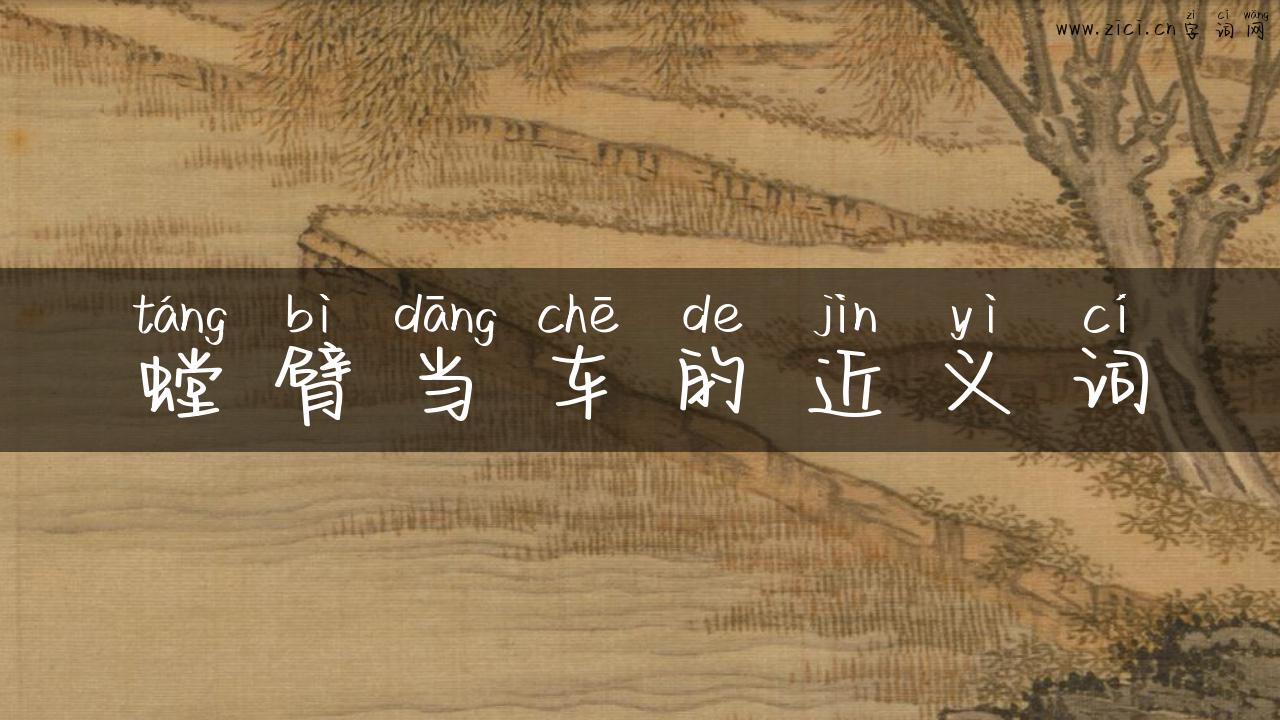 zì cí wǎng
www.zici.cn字词网
táng bì dāng chē de jìn yì cí
螳臂当车的近义词